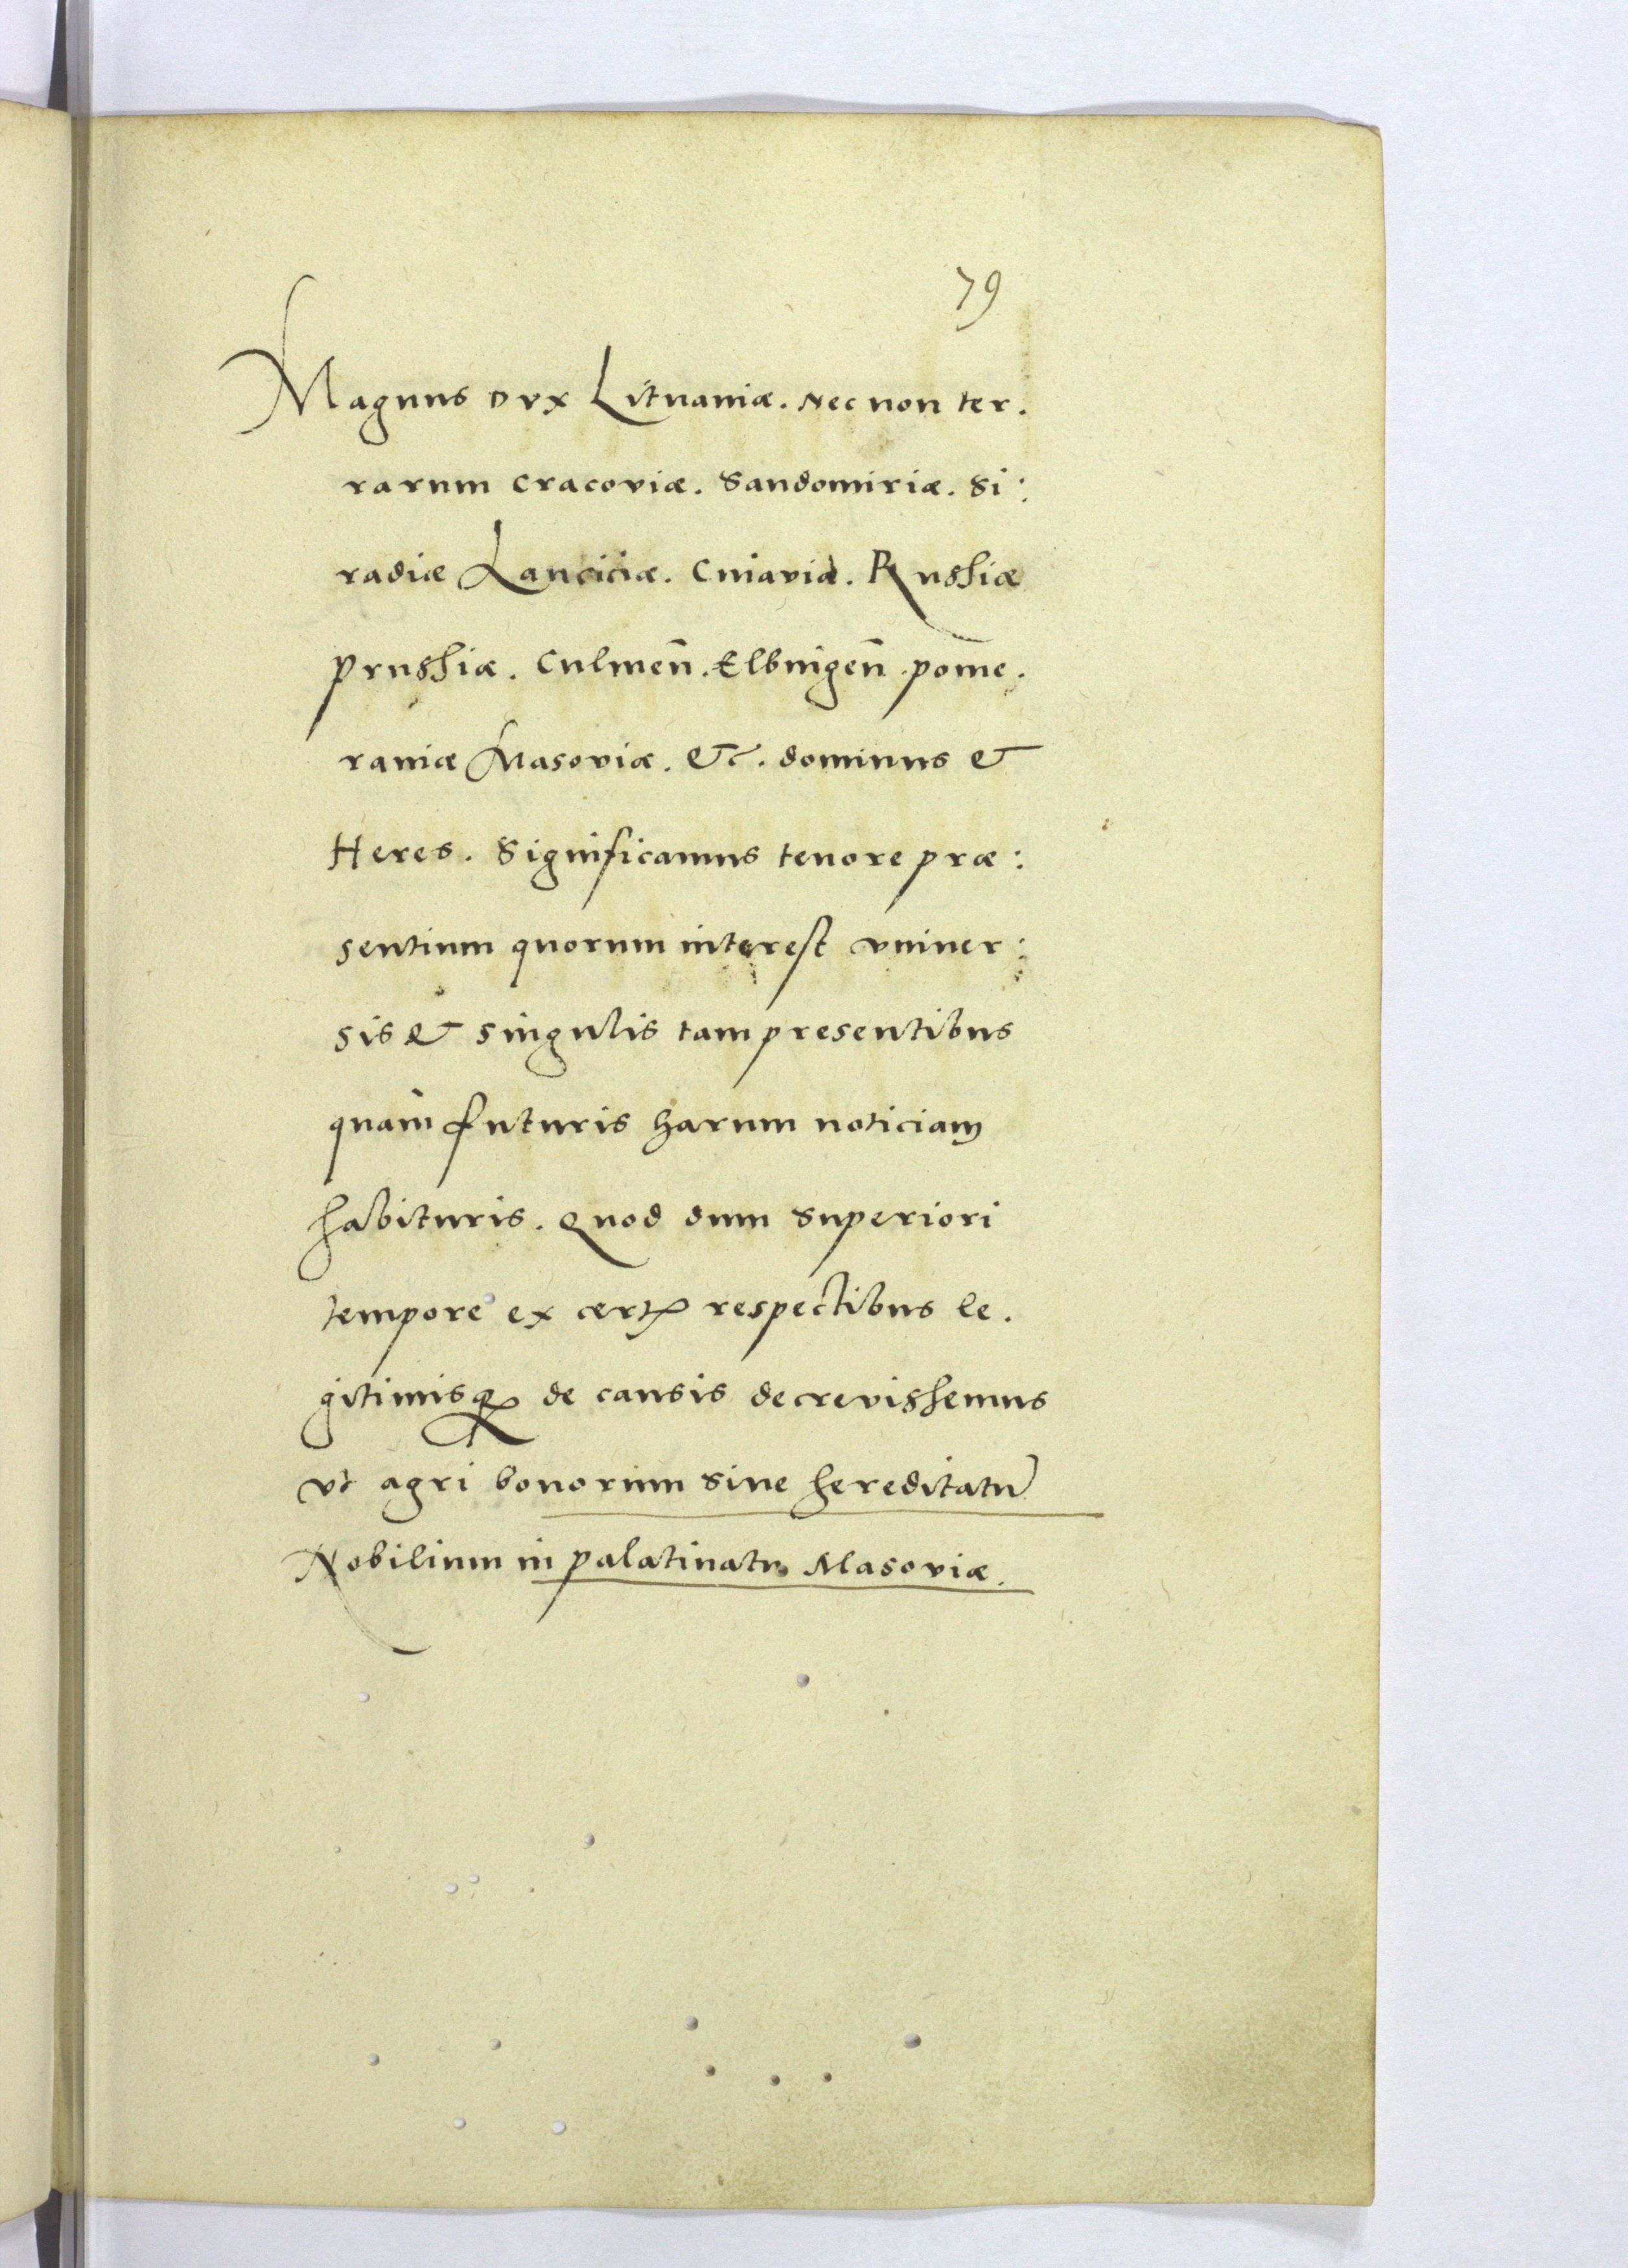 79
Magnus DVX Lituaniæ. Nec non ter.
rarum Cracoviæ. Sandomiriæ. Si:
radiæ Lanciciæ. Cuiaviæ. Russiæ
Prussiæ. Culmeñ. Elbingeñ. pome.
raniæ Masoviæ. &c. dominus &
Heres. Significamus tenore præ:
sentium quorum interest vniuer:
sis & singulis tam presentibus
quàm futuris harum noticiam
habituris. Quod dum superiori
tempore ex certꝭ respectibus le.
gitimisqꝫ de causis decrevissemus
vt agri bonorum siue hereditatũ
Nobilium in palatinatu Masoviæ.